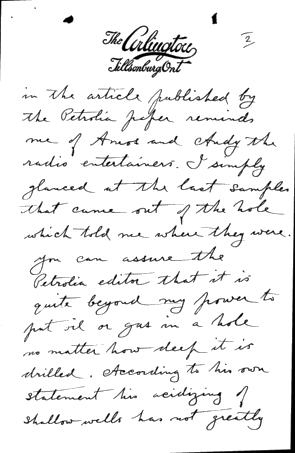 The Arlington
2
Tillsonburg Ont
in the article published by
the Petrolia paper reminds
me of Amos and Andy the
radio entertainers. I simply
glanced at the last samples
that came out of the hole
which told me where they were.
you can assure the
Petrolia editor that it is
quite beyond my power to
put oil or gas in a hole
no matter how deep it is
drilled. According to his own
statement his acidizing of
shallow wells has not greatly